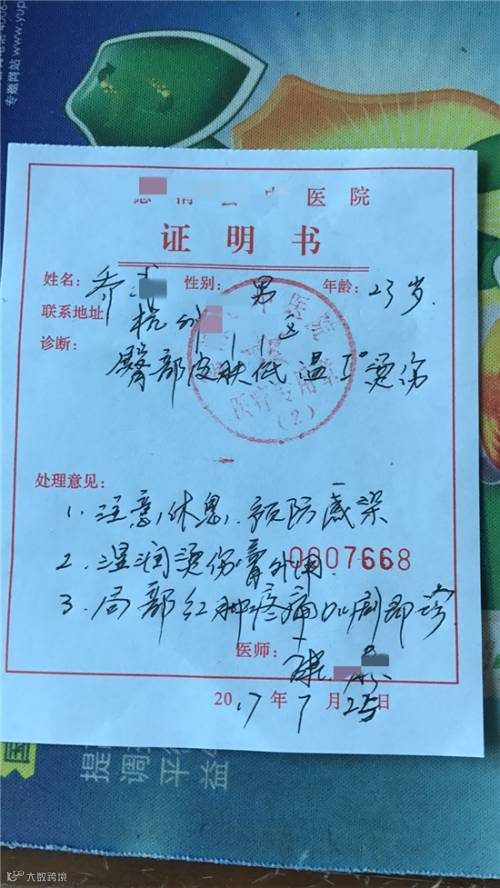 专题网站 www.yup
医院
证明书
姓名: 乔 性别: 男 年龄: 23岁.
联系地址 杭州 区
诊断:
臀部皮肤低温Ⅰ°烫伤
医疗专用章
(2)
处理意见:
1. 注意休息,预防感染
2. 湿润烫伤膏外用.
0007668
3. 局部红肿疼痛加剧即诊
医师:
2017年7月25日
国
提
调
平
益
大数跨境